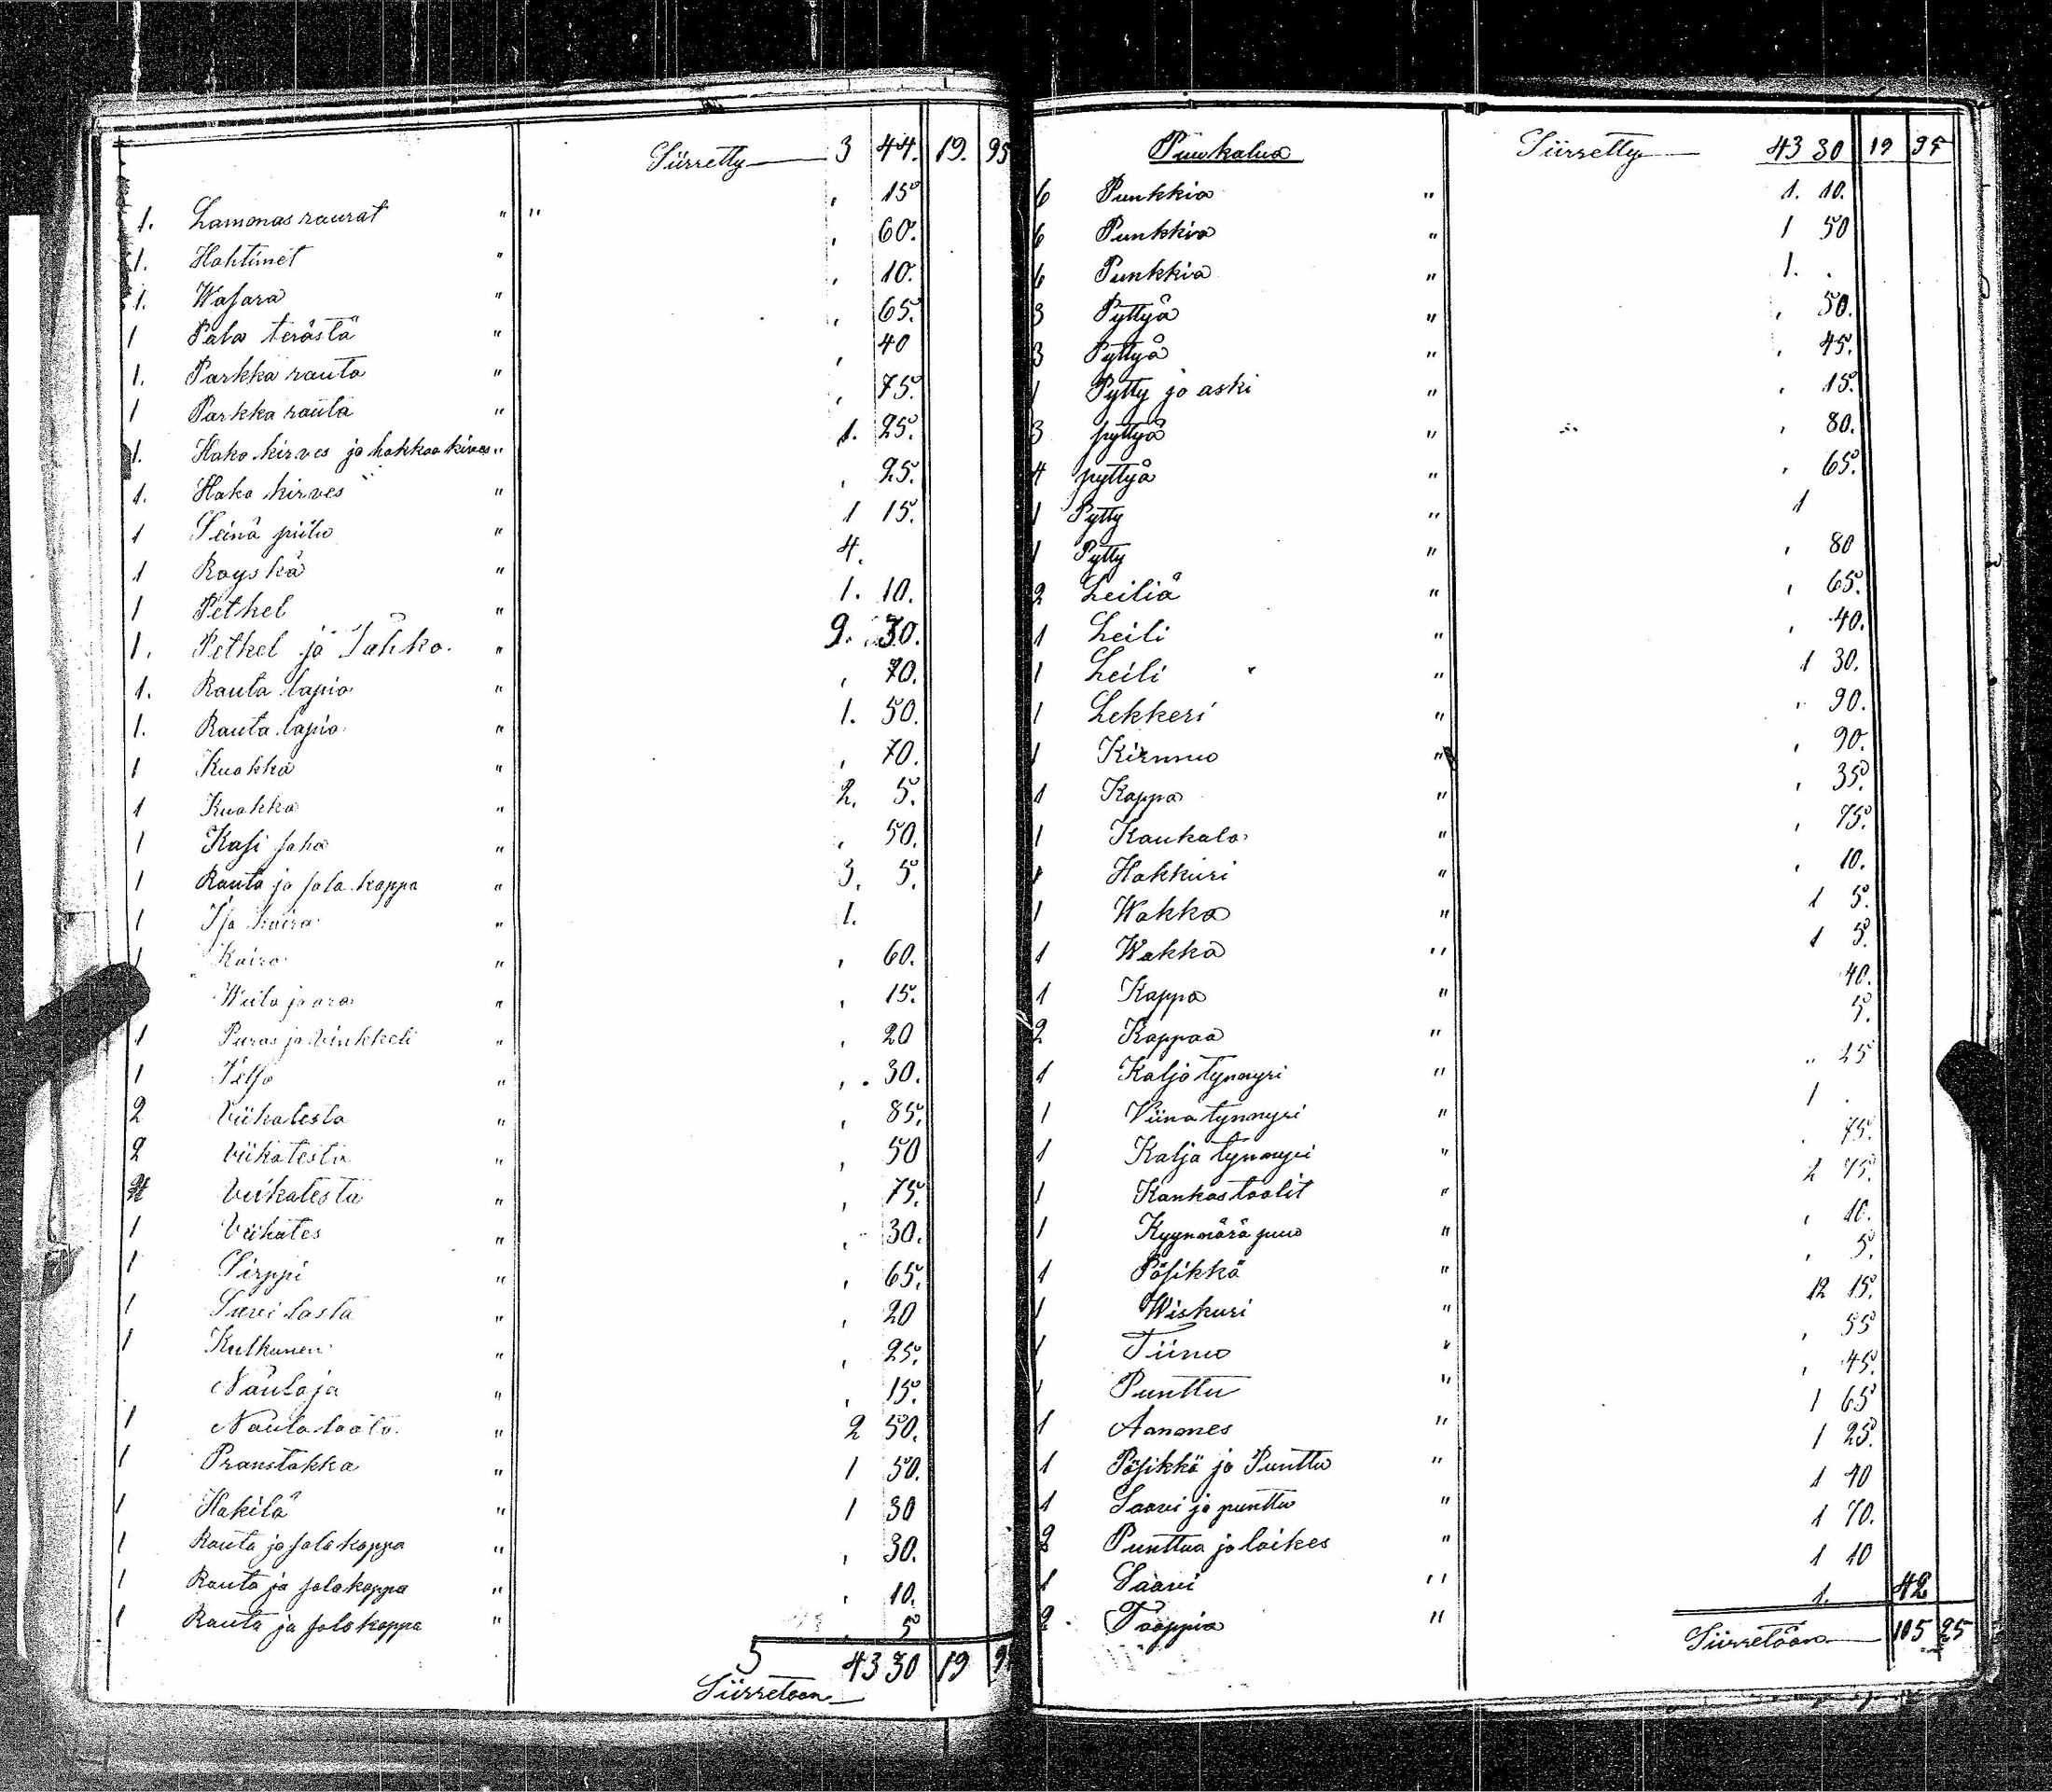 Siirretty 3 44. 19. 95
1. Lamonas raurat " " , 15
1. Hohtimet " , 60.
1. Wasara " , 10.
1 Pala terästä " , 65.
1. Parkka rauta " , 40
1 Parkka rauta " , 75.
1. Hako kirves ja hakkaa kirves " 1. 25.
1. Hako kirves " , 25.
1 Seinä piilu " 1 15.
1 Röyskä " 4.
1 Petkel " 1. 10.
1. Petkel ja Tähko. " 9. 30.
1. Rauta lapio " , 70.
1. Rauta lapio " 1. 50.
1 Kuokka " , 70.
1 Kuokka " 2. 5.
1 Käsi saha " , 50.
1 Rauta ja sälä koppa " 3. 5.
1 Iso kaira " 1.
1 Kaira " , 60.
Wiila ja ora " , 15.
1 Puras ja vinkkeli " , 20
1 Telso " , . 30.
2 Viikatesta " , 85.
2 Viikatesta " , 50
Viikatesta " , 75.
1 Viikates " , 30.
1 Sirppi " , 65.
1 Savi lasta " , 20
1 Kulkunen " , 25.
Nauloja " , 15.
1 Naula tuolo " 2 50.
1 Pranstakka " 1 50.
1 Hakilä " 1 30
1 Rauta ja sälä koppa " , 30.
1 Rauta ja sälä koppa " , 10.
1 Rauta ja sälä koppa " , 5
43 30 19
Siirretään
Puukalua Siirretty 43 30 19 95
6 Punkkia " 1. 10.
6 Punkkia " 1 50
6 Punkkia " 1. .
3 Pyttyä " , 50.
3 Pyttyä " , 45.
1 Pytty ja aski " , 15.
3 pyttyä " , 80.
4 pyttyä " , 65.
1 Pytty " 1
1 Pytty " , 80
2 Leiliä " , 65.
1 Leili " , 40.
1 Leili " 1 30.
1 Lekkeri " , 90.
1 Kirnuu " , 90.
1 Kappa " , 35.
1 Kaukalo " , 75.
1 Hakkuri " , 10.
1 Wakka " 1 5.
1 Wakka " 1 5.
1 Kappa " 40.
2 Kappaa " 5.
1 Kalja tynnyri " " 25
1 Viina tynnyri " 1 .
1 Kalja tynnyri " . 75.
1 Kankas tuolit " 2 75.
1 Kyynärä puu " , 10.
1 Pösikkä " , 5.
1 Wiskuri " 12 15.
1 Tiinu " , 55
1 Punttu " , 45.
1 Aanones " 1 65
1 Pösikkä ja Punttu " 1 25.
1 Saavi ja punttu " 1 40
2 Punttua ja laikes " 1 70.
1 Saavi " 1 10
2 Tooppia " 1. 42
Siirretään 105 25